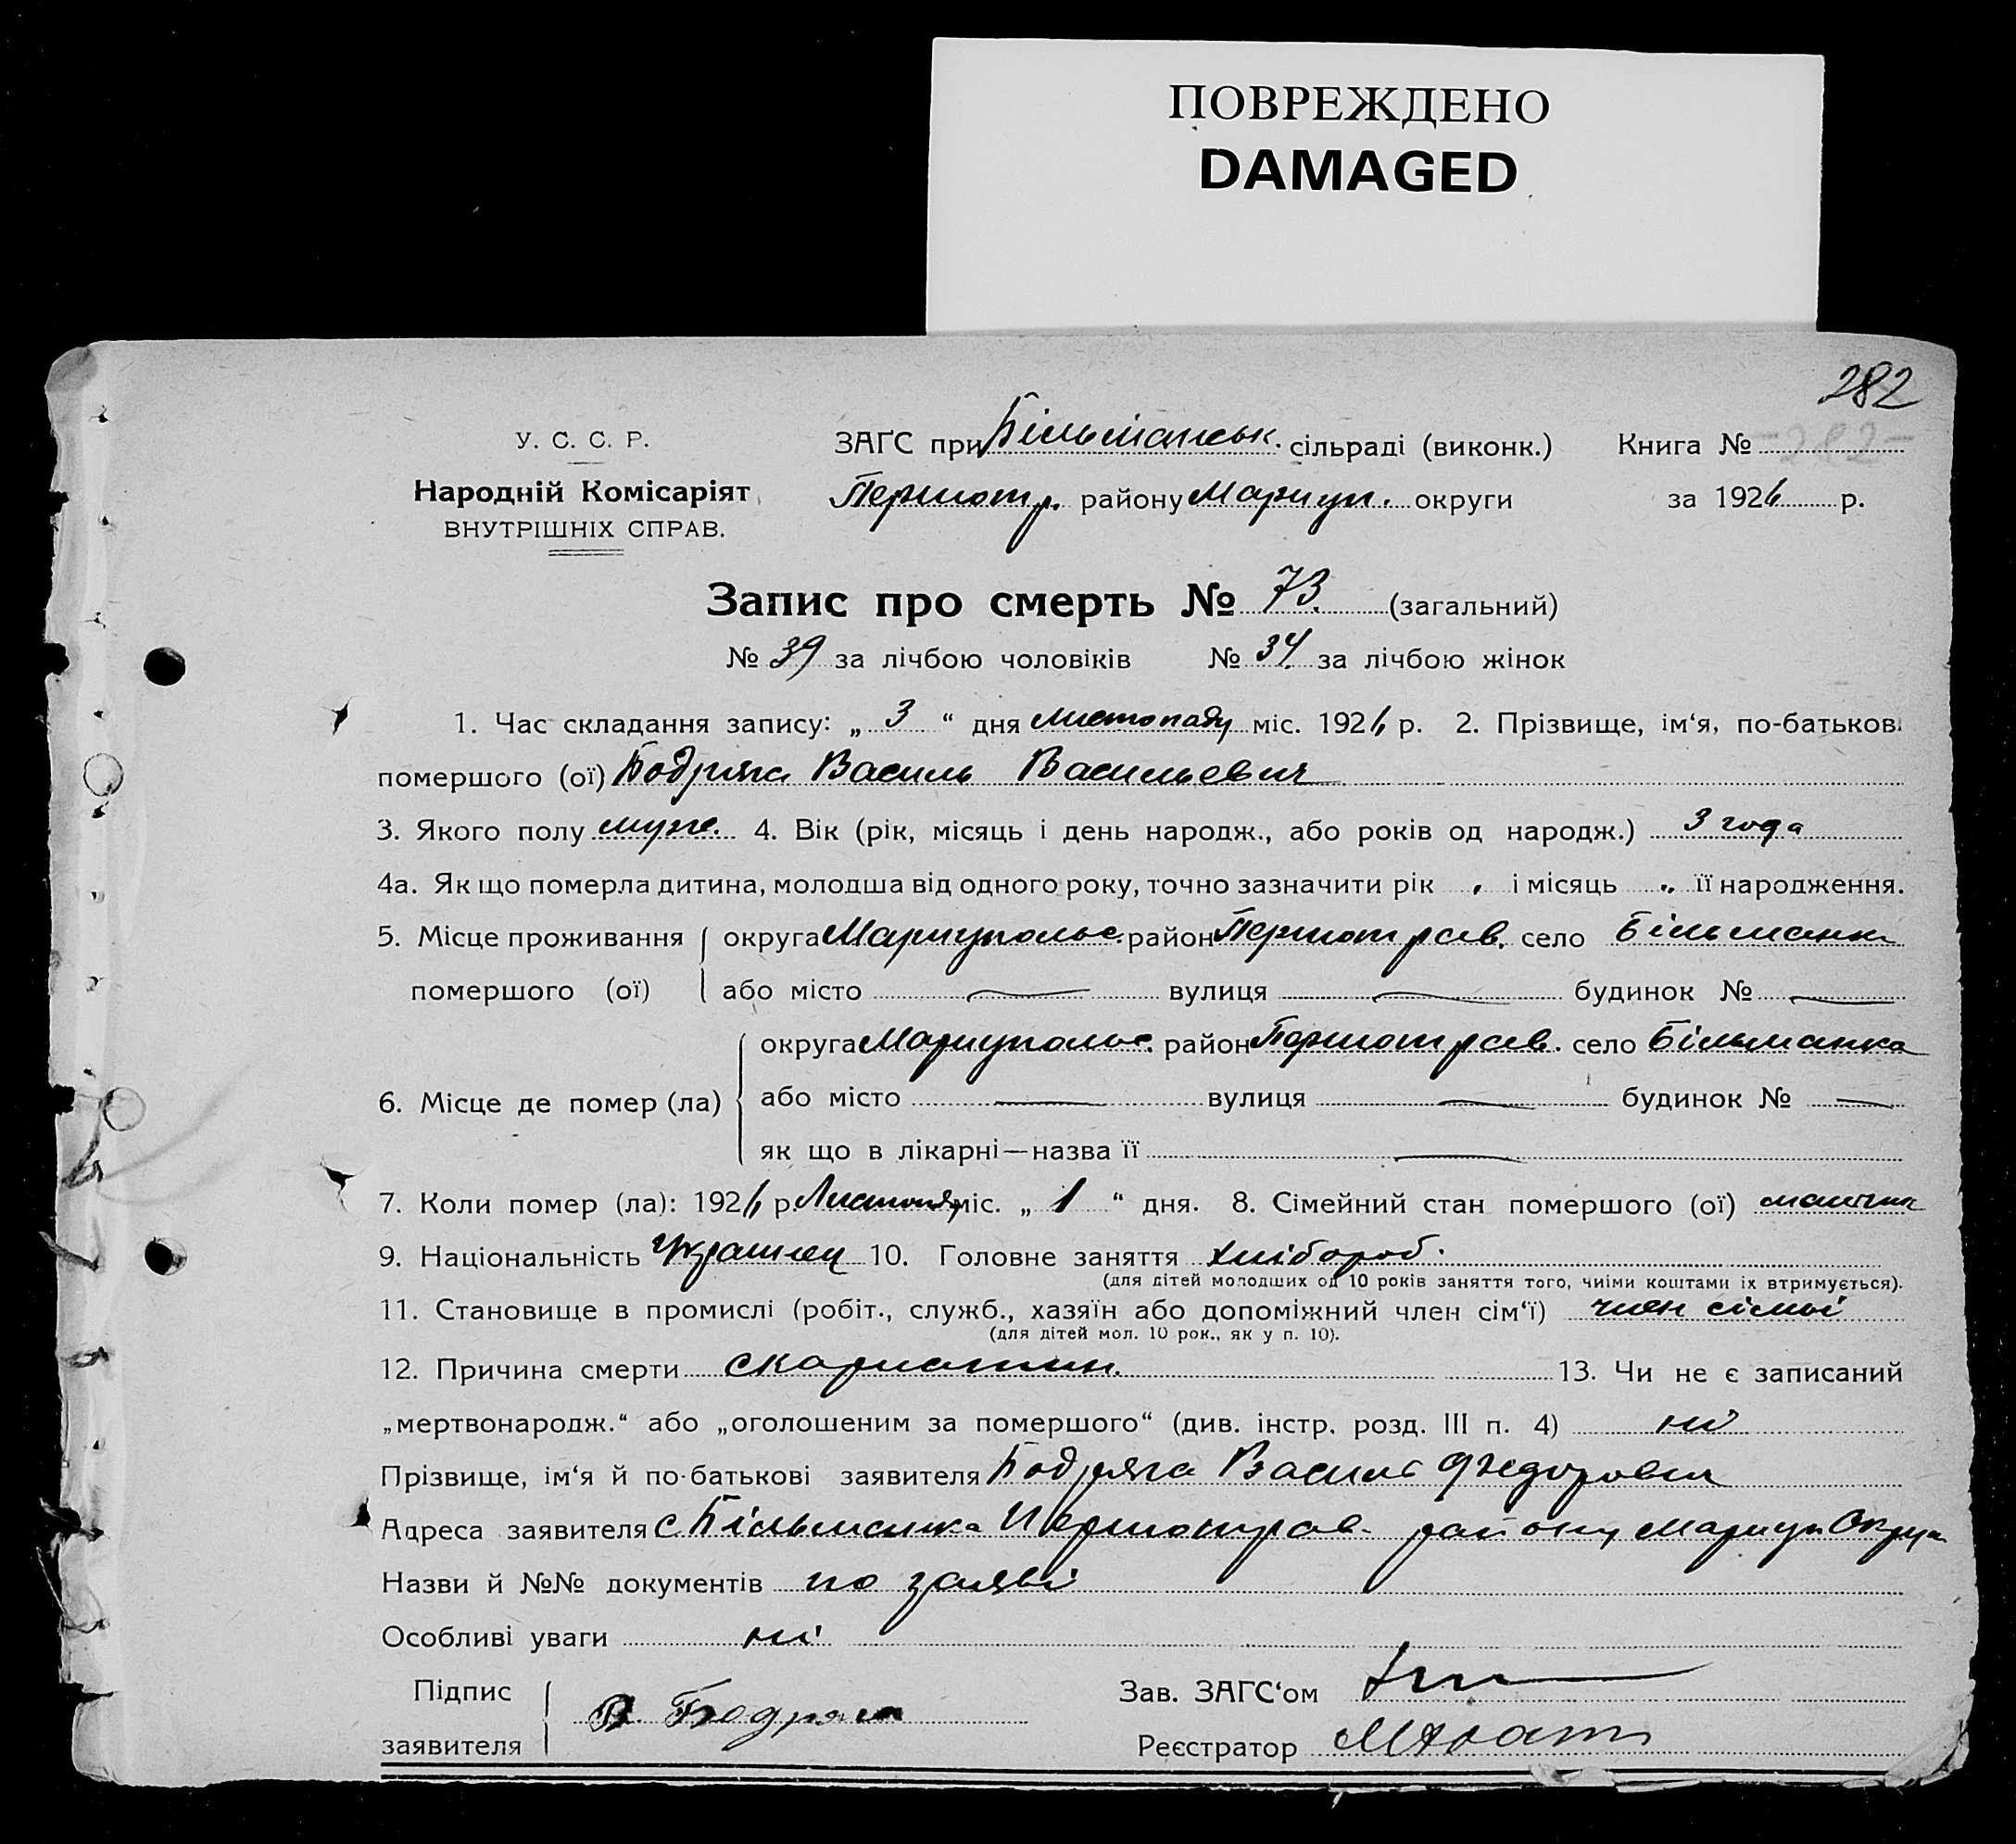 ПОВРЕЖДЕНО
DAMAGED
282
У. С. С. Р.
ЗАГС при Більманськ. сільраді (виконк.) Книга № -282-
Народній Комісаріят
Першотр. району Мариуп. округи за 1926 р.
ВНУТРІШНІХ СПРАВ.
Запис про смерть № 73. (загальний)
№ 39 за лічбою чоловіків № 34 за лічбою жінок
1. Час складання запису: „ 3 “ дня листопаду міс. 1926 р. 2. Прізвище, ім‘я, по-батькові
помершого (ої) Бодряга Василь Васильевич
3. Якого полу муж. 4. Вік (рік, місяць і день народж., або років од народж.) 3 года
4а. Як що померла дитина, молодша від одного року, точно зазначити рік і місяць її народження.
5. Місце проживання округа Мариупольс. район Першотрав. село Більманка
помершого (ої) або місто — вулиця — будинок № —
округа Мариупольс. район Першотрав. село Більманка
6. Місце де помер (ла) або місто — вулиця — будинок № —
як що в лікарні—назва її —
7. Коли помер (ла): 1926 р. Листопад міс. „ 1 “ дня. 8. Сімейний стан помершого (ої)
9. Національність Украинец 10. Головне заняття хлібороб.
(для дітей молодших од 10 років заняття того, чиїми коштами їх втримується).
11. Становище в промислі (робіт., служб., хазяїн або допоміжний член сім‘ї) член сімьї
(для дітей мол. 10 рок., як у п. 10).
12. Причина смерти скарлатин. 13. Чи не є записаний
„мертвонародж.“ або „оголошеним за помершого“ (див. інстр. розд. III п. 4) ні
Прізвище, ім‘я й по-батькові заявителя Бодряга Василь Федорович
Адреса заявителя с Більманка Першотрав. району Мариуп Округи
Назви й №№ документів по заяві
Особливі уваги ні
Підпис
Зав. ЗАГС‘ом
В. Бодряга
заявителя
Реєстратор